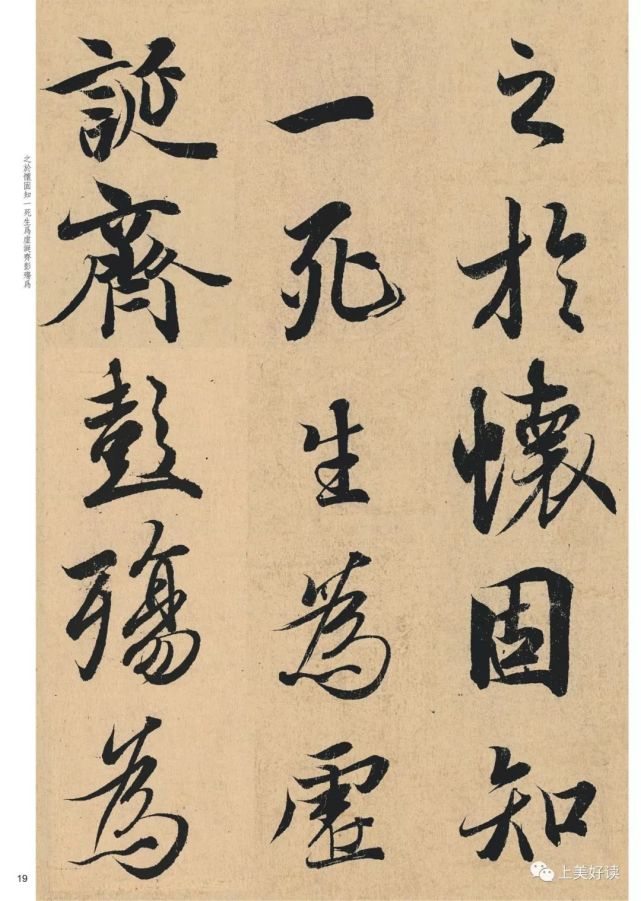 之於懷固知
一死生為虛
誕齊彭殤為
之於懷固知一死生爲虛誕齊彭殤爲
19
上美好读